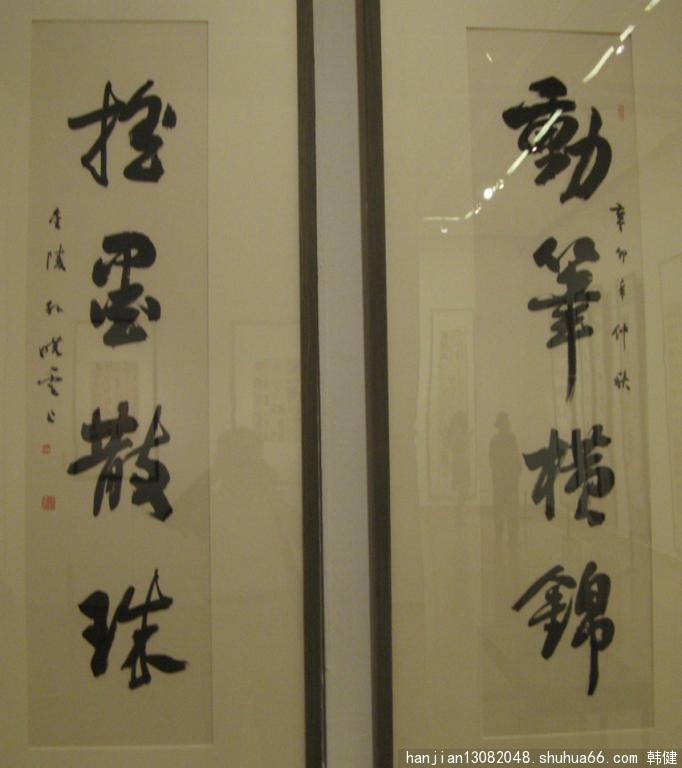 動筆橫錦
辛卯年仲秋
搖墨散珠
金陵孙曉雲
hanjian13082048.shuhua66.com 韩健